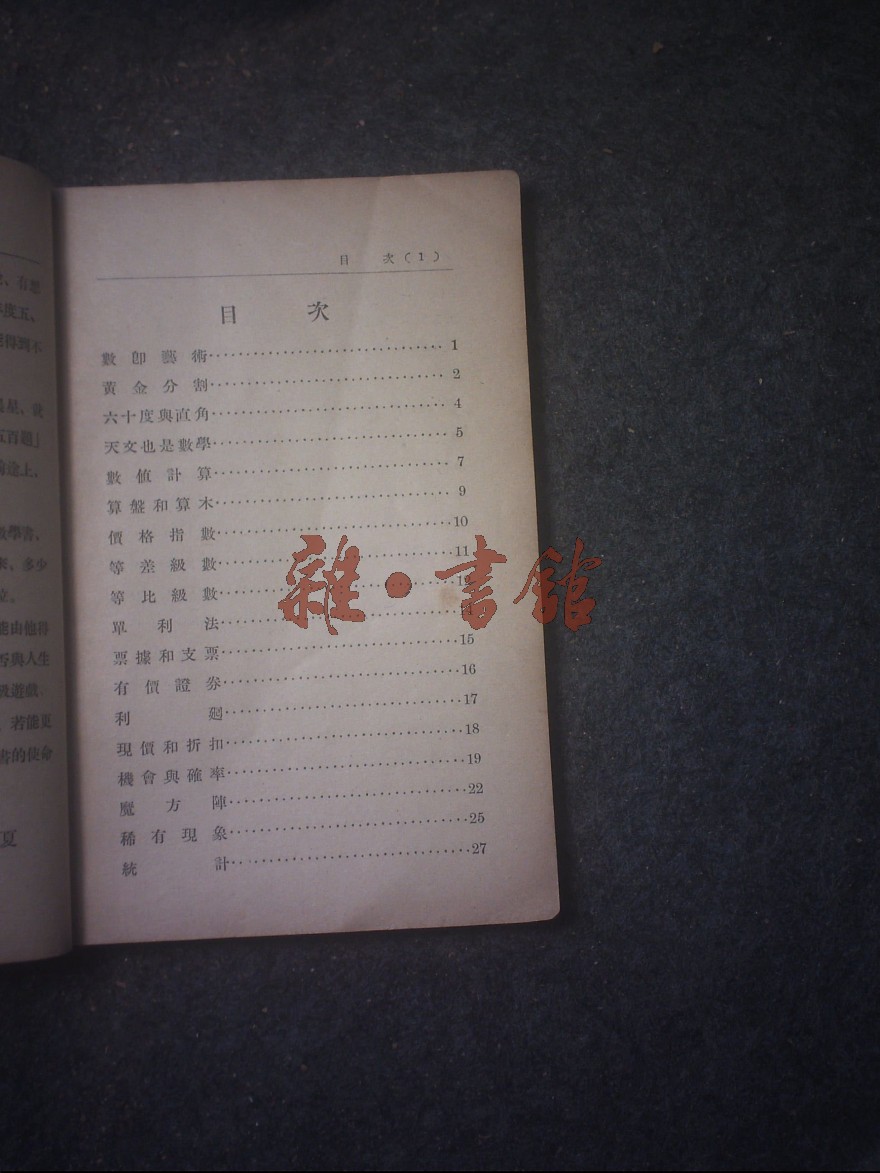 目 次(1)
目 次
數即藝術 1
黃金分割 2
六十度與直角 4
天文也是數學 5
數值計算 7
算盤和算木 9
價格指數 10
等差級數 11
等比級數 12
單利法
票據和支票 15
有價證券 16
利廻 17
現價和折扣 18
機會與確率 19
魔方陣 22
稀有現象 25
統計 27
雜·書館
有想
度五、
得到不
星、就
五百題」
途上、
數學書、
多少
能由他得
與人生
級遊戲
若能更
書的使命
夏